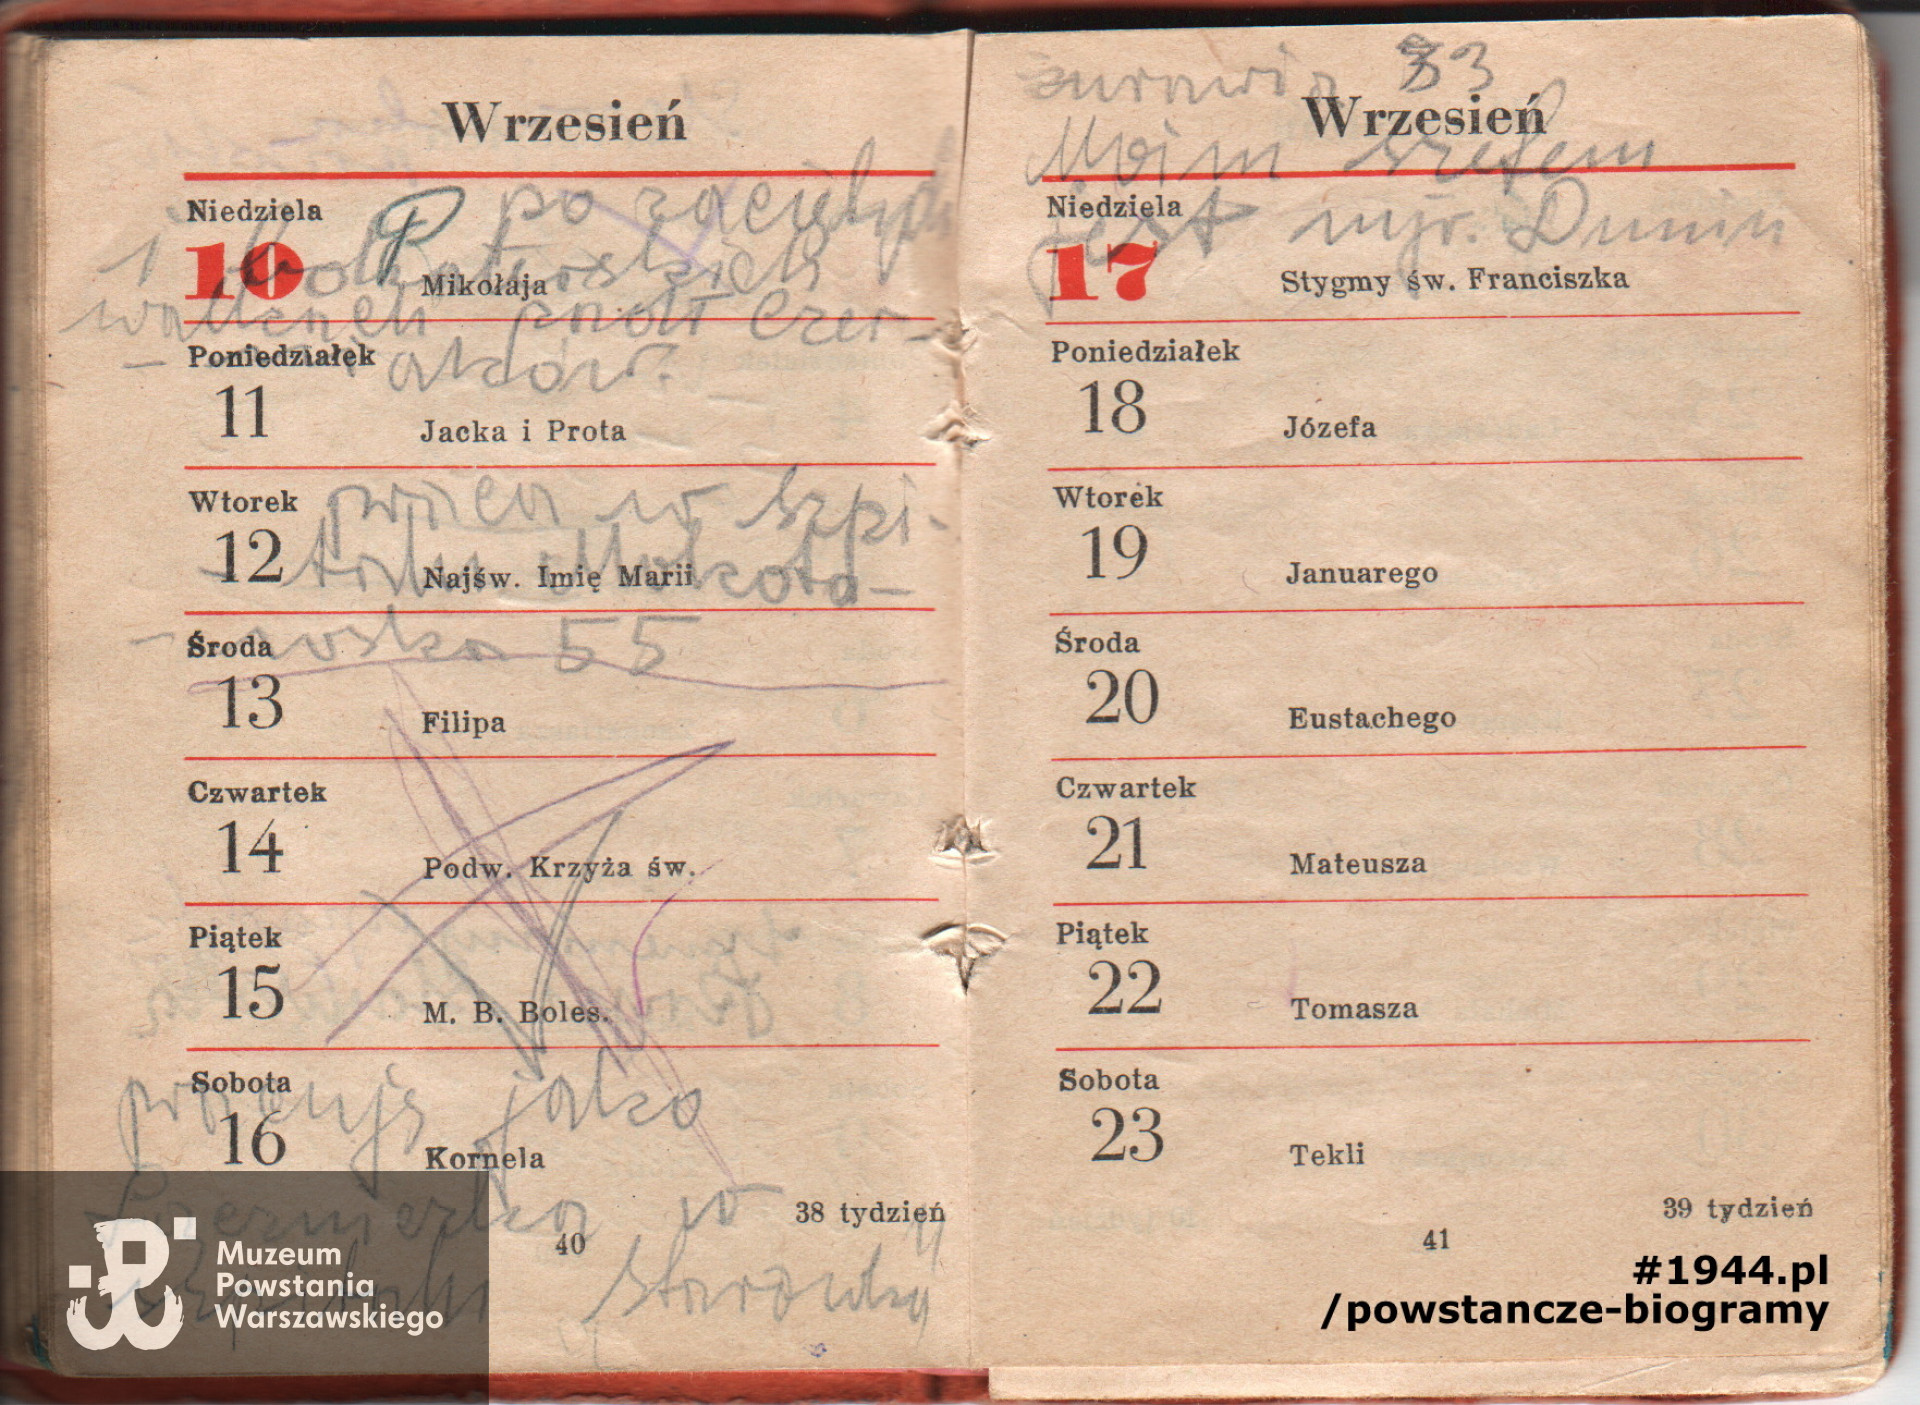 Wrzesień
Niedziela
P po zaciętych
10
i bohaterskich
Mikołaja
walkach padł Czer-
Poniedziałek
- niaków.
11
Jacka i Prota
Wtorek
praca w szpi-
12
- talu Mokoto-
Najśw. Imię Marii
Środa
- wska 55
13
Filipa
Czwartek
14
Podw. Krzyża św.
Piątek
15
M. B. Boles.
Sobota
pracuję jako
16
Kornela
w
38 tydzień
40
szpitalu
Muzeum
Powstania
Warszawskiego
Żurawia 33
Wrzesień
Moim szefem
Niedziela
jest mjr. Dunin
17
Stygmy św. Franciszka
Poniedziałek
18
Józefa
Wtorek
19
Januarego
Środa
20
Eustachego
Czwartek
21
Mateusza
Piątek
22
Tomasza
Sobota
23
Tekli
39 tydzień
41
#1944.pl
/powstancze-biogramy